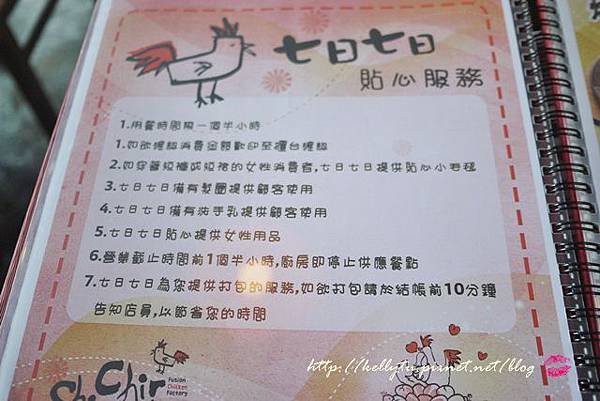 七日七日
貼心服務
1.用餐時間限一個半小時
1.如欲確認消費金額歡迎至櫃台確認
2.如穿著短褲或短裙的女性消費者,七日七日提供貼心小毛毯
3.七日七日備有髮圈提供顧客使用
4.七日七日備有洗手乳提供顧客使用
5.七日七日貼心提供女性用品
6.營業截止時間前1個半小時,廚房即停止供應餐點
7.七日七日為您提供打包的服務,如欲打包請於結帳前10分鐘
告知店員,以節省您的時間
Chir
Fusion
Chicken
Factory
http://kellytu.pixnet.net/blog